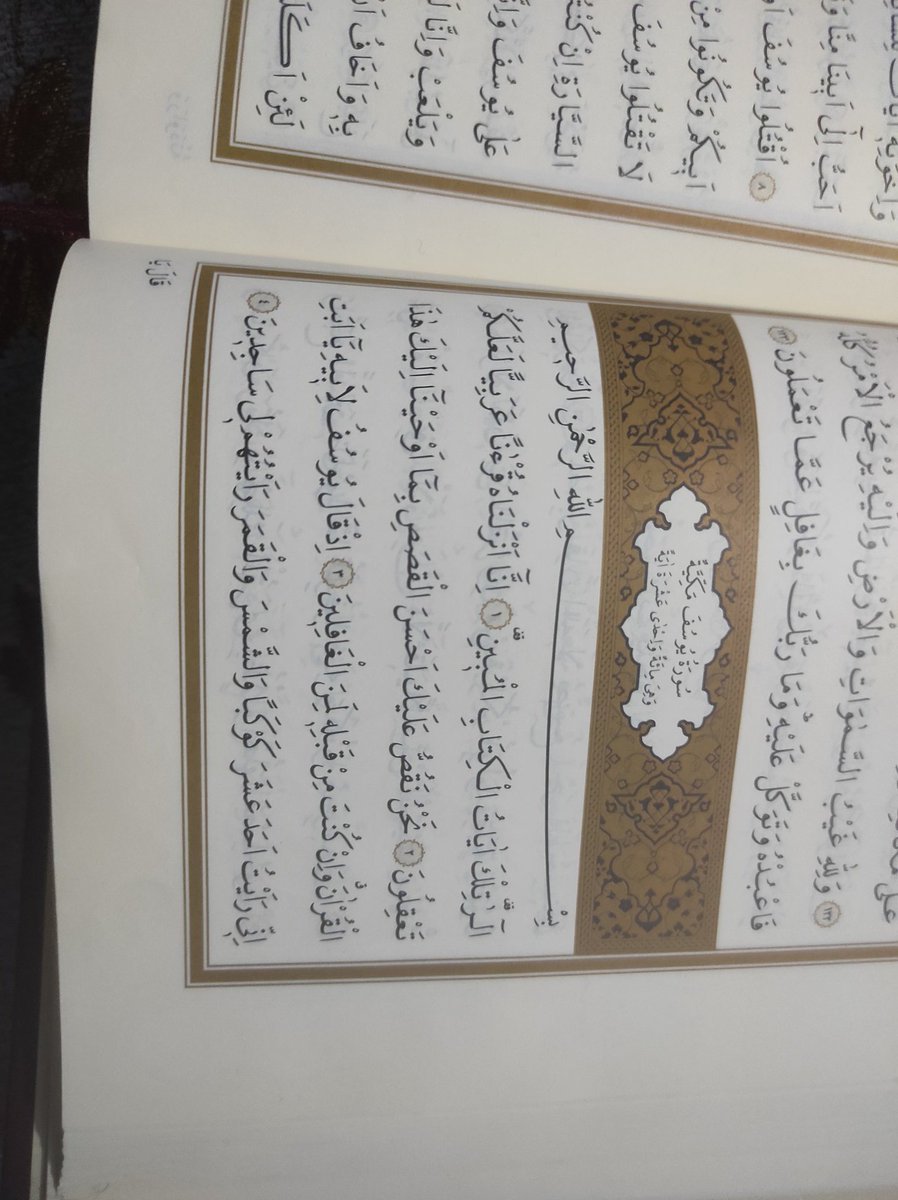 ١٢٢ وَلِلّٰهِ غَيْبُ السَّمٰوَاتِ وَالْاَرْضِ وَاِلَيْهِ يُرْجَعُ الْاَمْرُ كُلُّهُ
فَاعْبُدْهُ وَتَوَكَّلْ عَلَيْهِۜ وَمَا رَبُّكَ بِغَافِلٍ عَمَّا تَعْمَلُونَ ١٢٣
سُورَةُ يُوسُفَ مَكِّيَّةٌ
وَهِيَ مِائَةٌ وَاِحْدٰى عَشْرَةَ اٰيَةً
بِسْمِ اللّٰهِ الرَّحْمٰنِ الرَّحِيمِ
الٓرٰ۠ تِلْكَ اٰيَاتُ الْكِتَابِ الْمُبِينِ۠ ١ اِنَّٓا اَنْزَلْنَاهُ قُرْءٰنًا عَرَبِيًّا لَعَلَّكُمْ
تَعْقِلُونَ ٢ نَحْنُ نَقُصُّ عَلَيْكَ اَحْسَنَ الْقَصَصِ بِمَٓا اَوْحَيْنَٓا اِلَيْكَ هٰذَا
الْقُرْاٰنَۗ وَاِنْ كُنْتَ مِنْ قَبْلِهِ لَمِنَ الْغَافِلِينَ ٣ اِذْ قَالَ يُوسُفُ لِاَبِيهِ يَٓا اَبَتِ
اِنِّي رَاَيْتُ اَحَدَ عَشَرَ كَوْكَبًا وَالشَّمْسَ وَالْقَمَرَ رَاَيْتُهُمْ لِي سَاجِدِينَ ٤
قَالَ يَا
وَاَخُوهُ
اَحَبُّ اِلٰٓى اَبِينَا مِنَّا
٨ اُقْتُلُوا يُوسُفَ
اَبِيكُمْ وَتَكُونُوا مِنْ
لَا تَقْتُلُوا يُوسُفَ
السَّيَّارَةِ اِنْ كُنْتُمْ
عَلٰى يُوسُفَ وَاِنَّا
وَيَلْعَبْ وَاِنَّا
بِهِ وَاَخَافُ اَنْ
لَئِنْ اَكَلَهُ